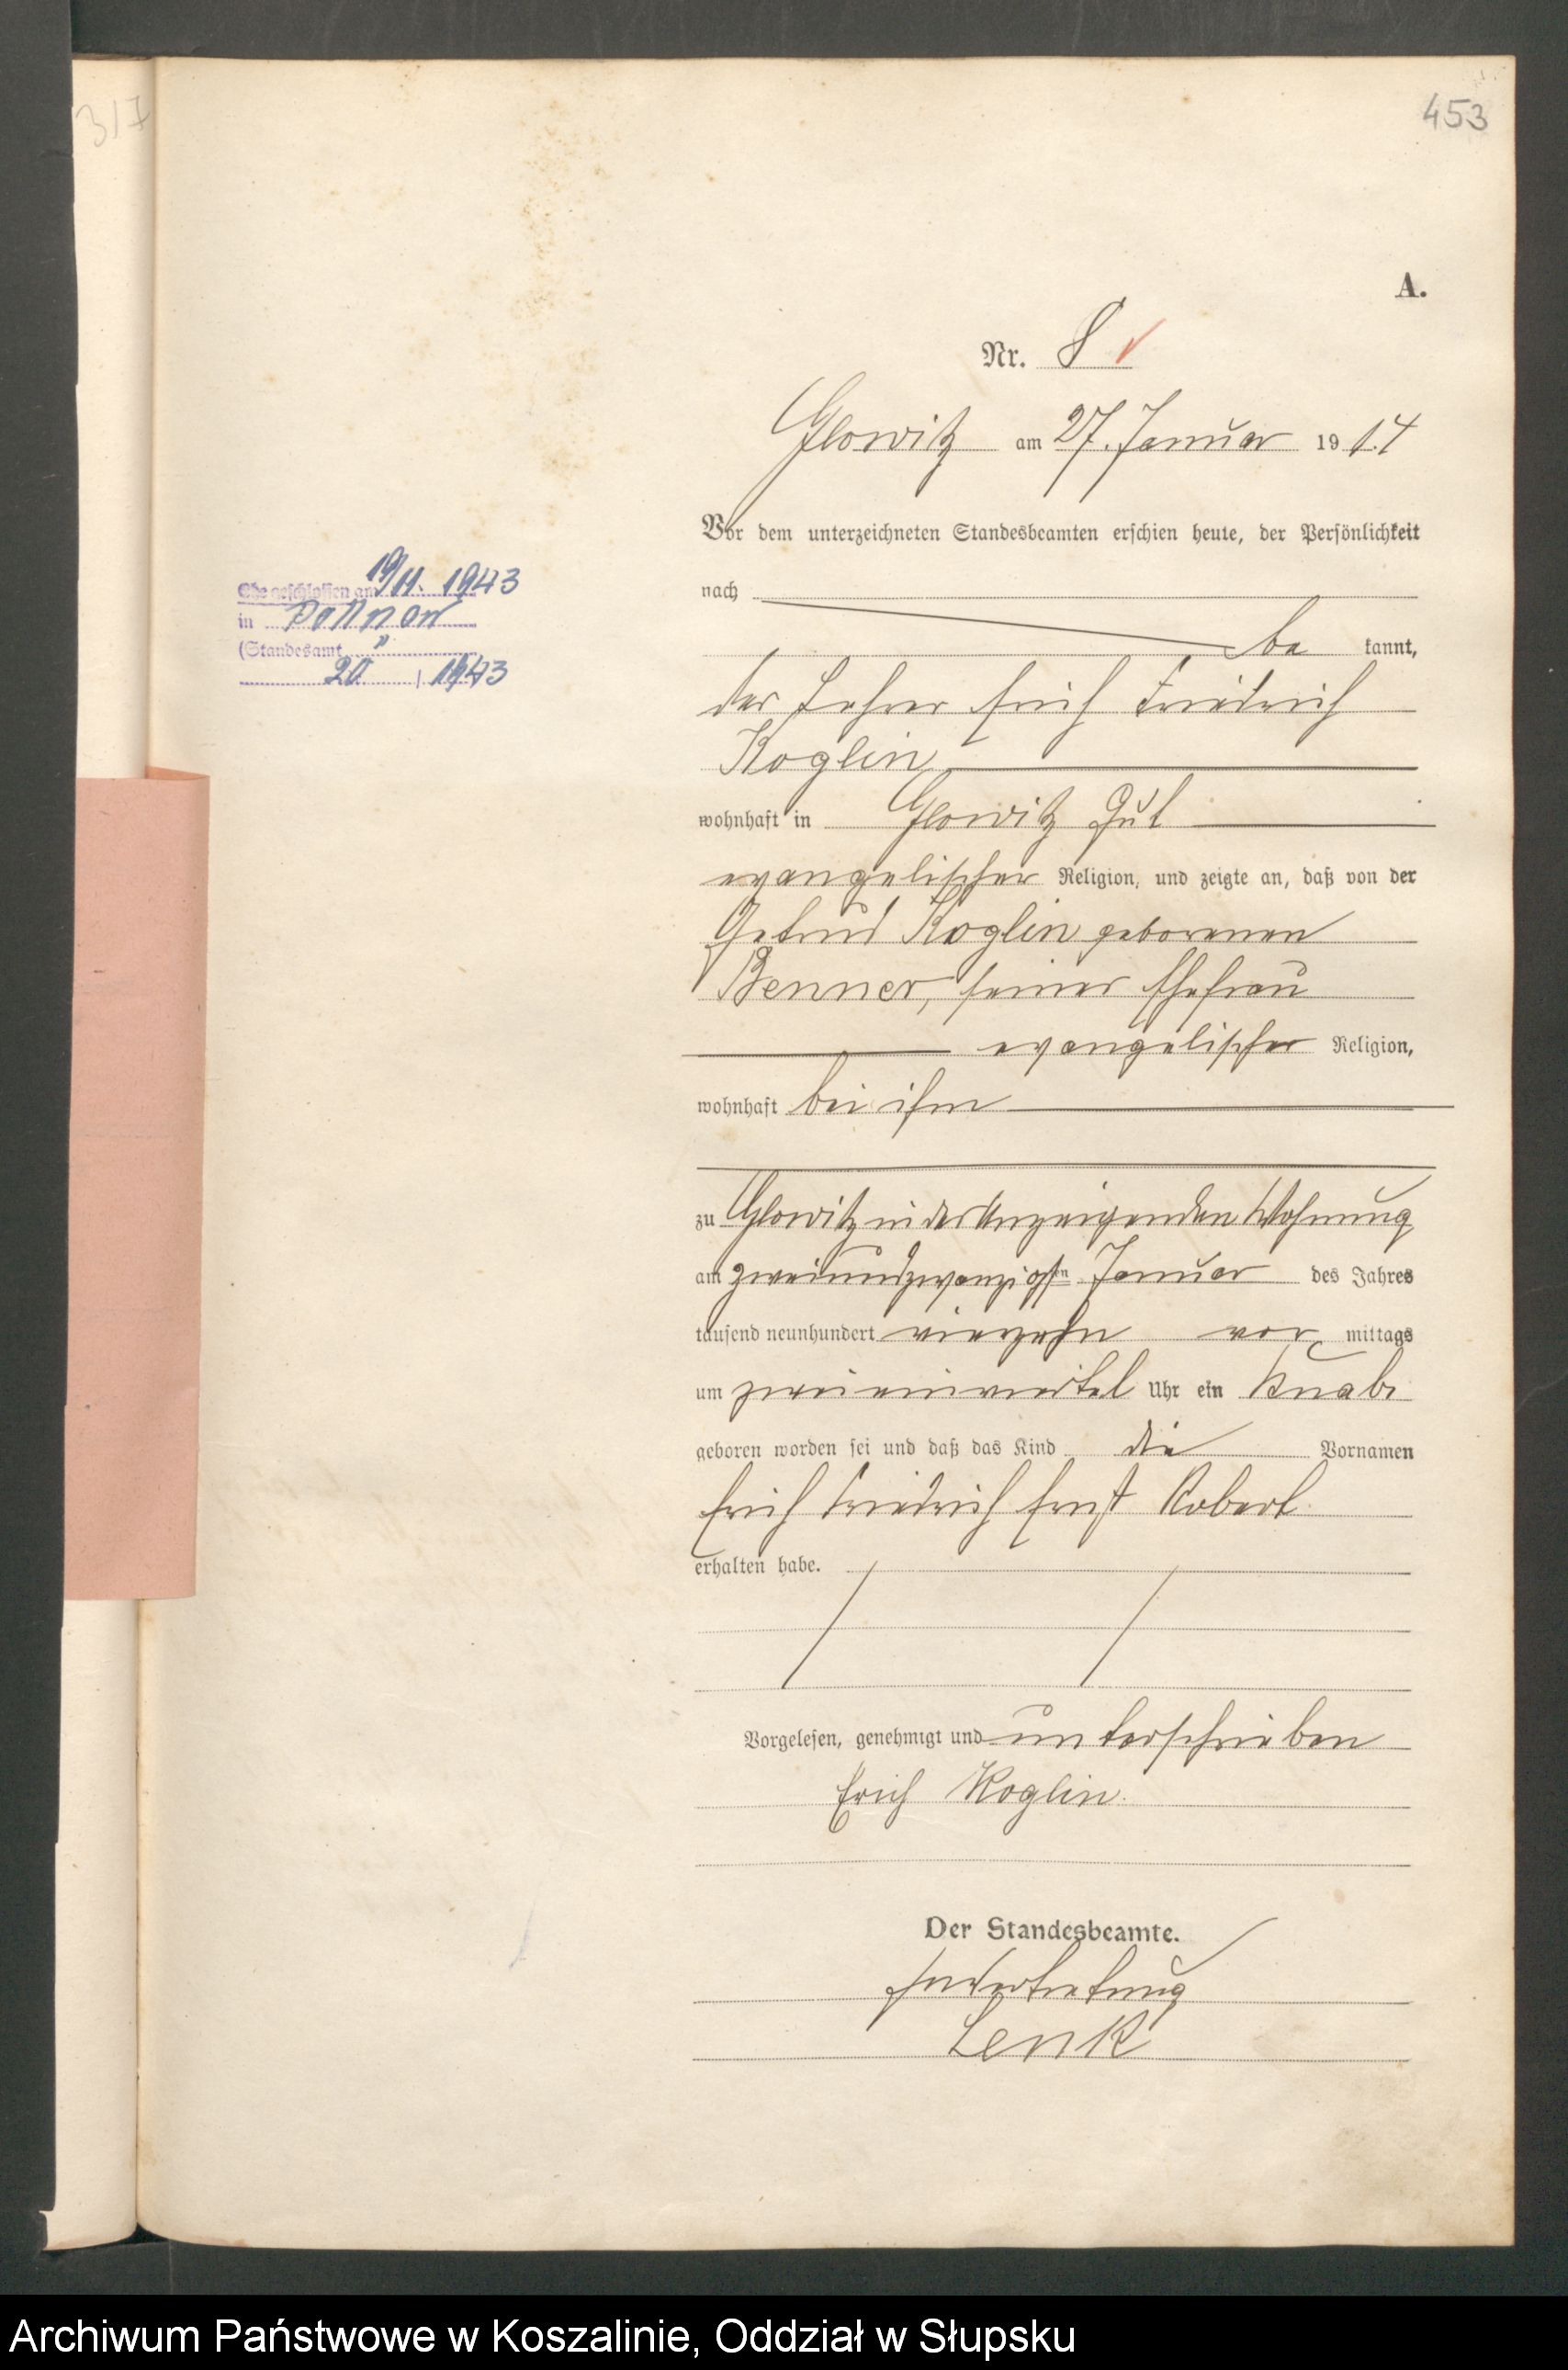 317
453
A.
Nr. 8
Glowitz am 27. Januar 1914
Vor dem unterzeichneten Standesbeamten erschien heute, der Persönlichkeit
nach
be kannt,
der Lehrer Erich Friedrich
Koglin
wohnhaft in Glowitz Gut
evangelischer Religion, und zeigte an, daß von der
Getrud Koglin geborenen
Benner, seiner Ehefrau
evangelischer Religion,
wohnhaft bei ihm
zu Glowitz in des Anzeigenden Wohnung
am zweiundzwanzigsten Januar des Jahres
tausend neunhundert vierzehn vor mittags
um zweieinviertel Uhr ein Knabe
geboren worden sei und daß das Kind die Vornamen
Erich Friedrich Ernst Robert
erhalten habe.
Vorgelesen, genehmigt und unterschrieben
Erich Koglin.
Der Standesbeamte.
In Vertretung
Lenk
Ehe geschlossen am 19/11. 1943
in Pollnow
(Standesamt "
20 / 1943
Archiwum Państwowe w Koszalinie, Oddział w Słupsku